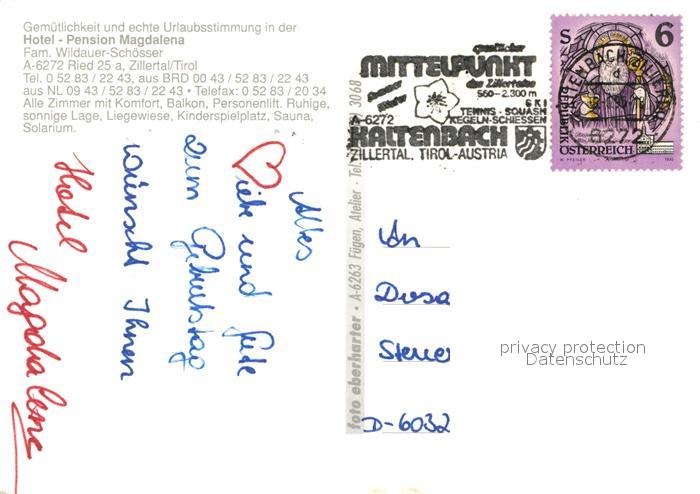 Gemütlichkeit und echte Urlaubsstimmung in der
Hotel - Pension Magdalena
Fam. Wildauer-Schösser
A-6272 Ried 25 a, Zillertal/Tirol
Tel. 0 52 83 / 22 43, aus BRD 00 43 / 52 83 / 22 43
aus NL 09 43 / 52 83 / 22 43 • Telefax: 0 52 83 / 20 34
Alle Zimmer mit Komfort, Balkon, Personenlift. Ruhige,
sonnige Lage, Liegewiese, Kinderspielplatz, Sauna,
Solarium.
Alles
Liebe und Gute
zum Geburtstag
wünscht Ihnen
Hotel
Magdalena
foto eberharter • A-6263 Fügen, Atelier • Tel. 3068
sportlicher
MITTELPUNKT
des Zillertales
Sommer
Winter
560-2.300 m
SKI
TENNIS - SQUASH
A-6272
KEGELN-SCHIESSEN
KALTENBACH
ZILLERTAL, TIROL-AUSTRIA
S 6
REPUBLIK
ÖSTERREICH
6272
An
D-6032
privacy protection
Datenschutz